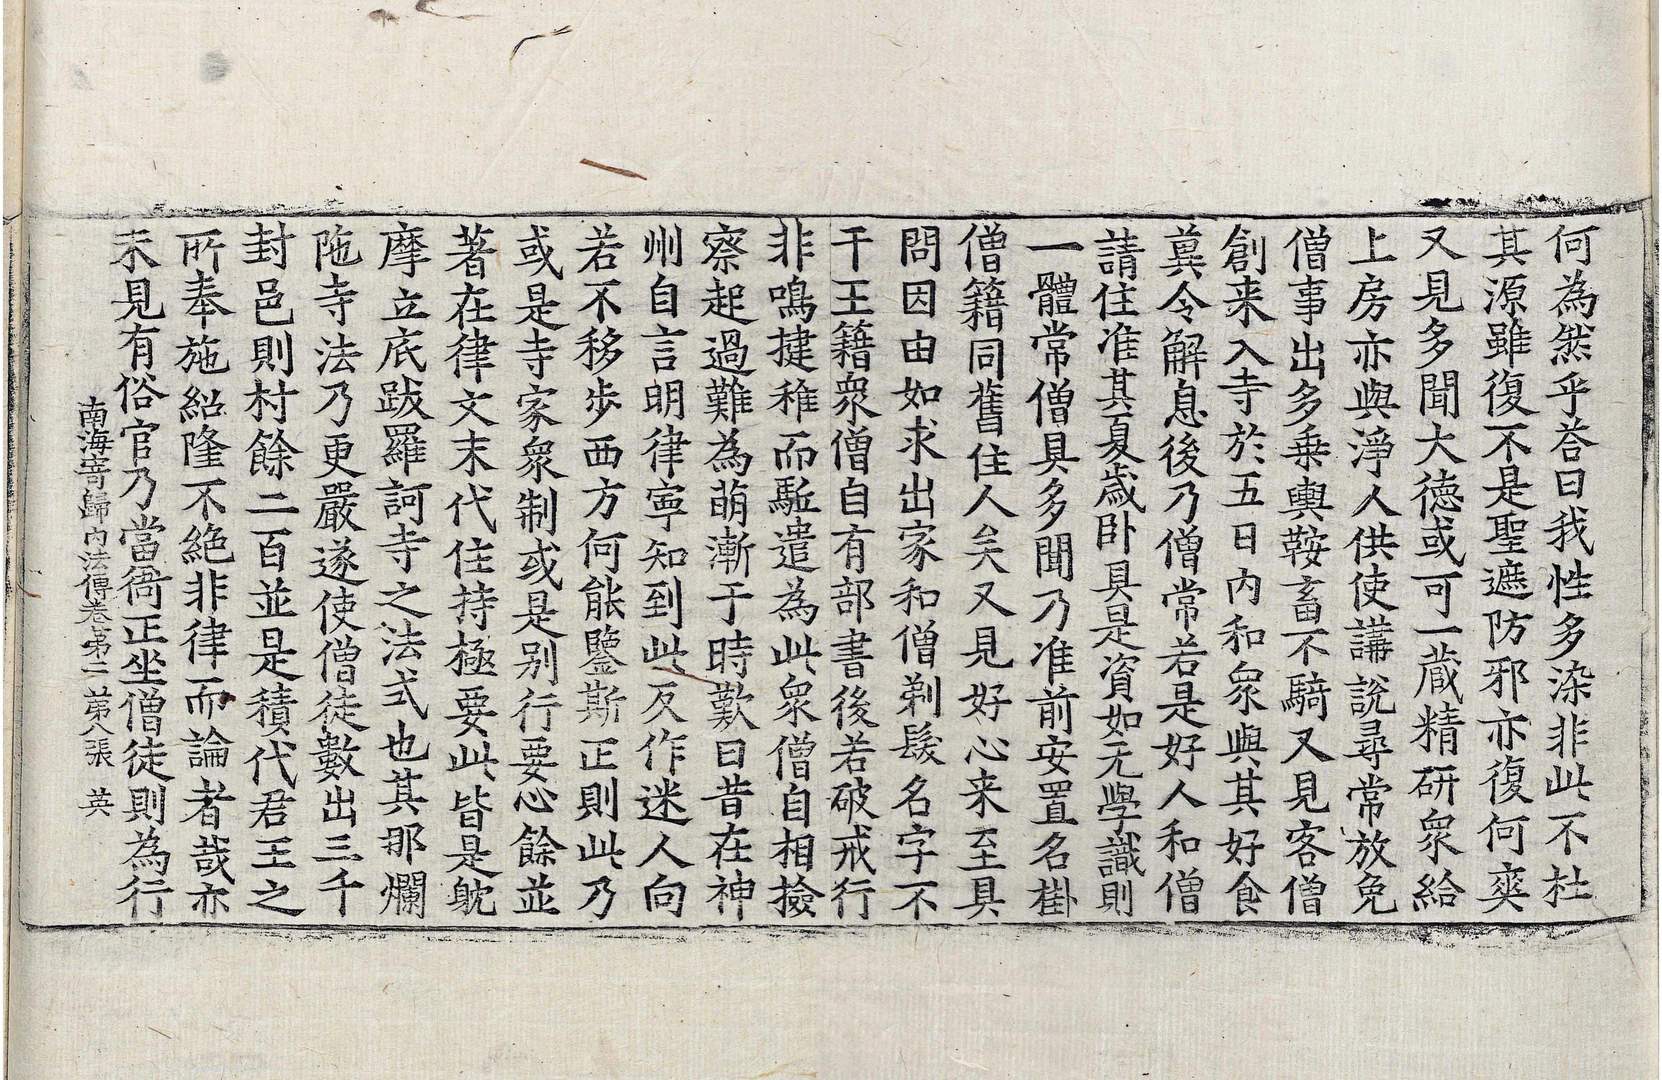 何為然乎荅曰我性多染非此不杜
其源雖復不是聖遮防邪亦復何爽
又見多聞大德或可一蔵精研衆給
上房亦與淨人供使講說尋常放免
僧事出多乗輿鞍畜不騎又見客僧
創来入寺於五日內和衆與其好食
兾令解息後乃僧常若是好人和僧
請住准其夏歳卧具是資如无學識則
一體常僧具多聞乃准前安置名掛
僧籍同舊住人矣又見好心来至具
問因由如求出家和僧剃髮名字不
干王籍衆僧自有部書後若破戒行
非鳴揵稚而駈遣為此衆僧自相撿
察起過難為萌漸于時歎曰昔在神
州自言明律寧知到此反作迷人向
若不移歩西方何能鑒斯正則此乃
或是寺家衆制或是別行要心餘並
著在律文末代住持極要此皆是躭
摩立底跋羅訶寺之法式也其那爛
陁寺法乃更嚴遂使僧徒數出三千
封邑則村餘二百並是積代君王之
所奉施紹隆不絶非律而論者哉亦
未見有俗官乃當衙正坐僧徒則為行
南海寄歸內法傳卷第二 第八張 英